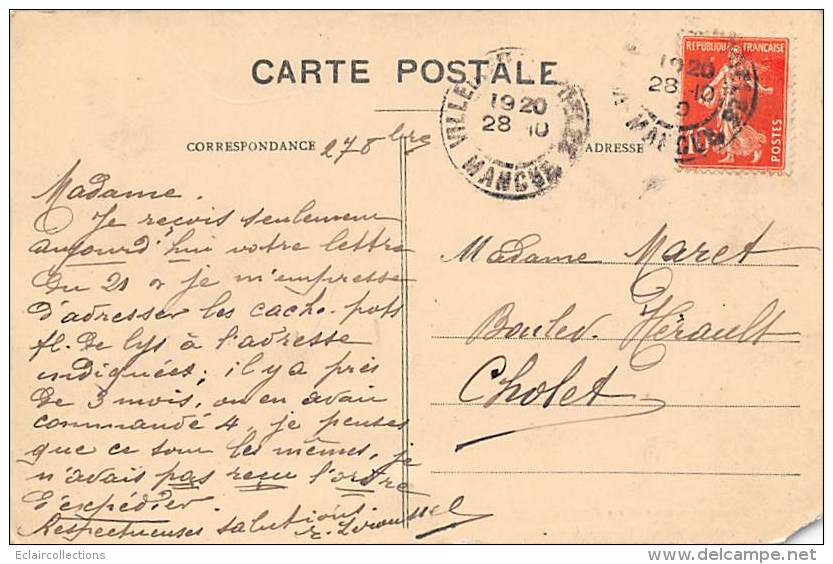 CARTE POSTALE
REPUBLIQUE FRANÇAISE
POSTES
1920
28 10
MANCHE
1920
28 10
CORRESPONDANCE
ADRESSE
Madame.
Je reçois seulement
aujourd'hui votre lettre
du 21 & je m'empresse
d'adresser les cache-pots
fl. de lys à l'adresse
indiquées; il y a près
de 3 mois, on en avait
commandé 4, je penses
que ce sont les mêmes, je
n'avais pas reçu l'ordre
d'expédier.
Respectueuses salutions.
Madame Maret
Boulev. Hérault
Cholet
Eclaircollections
delcampe.net